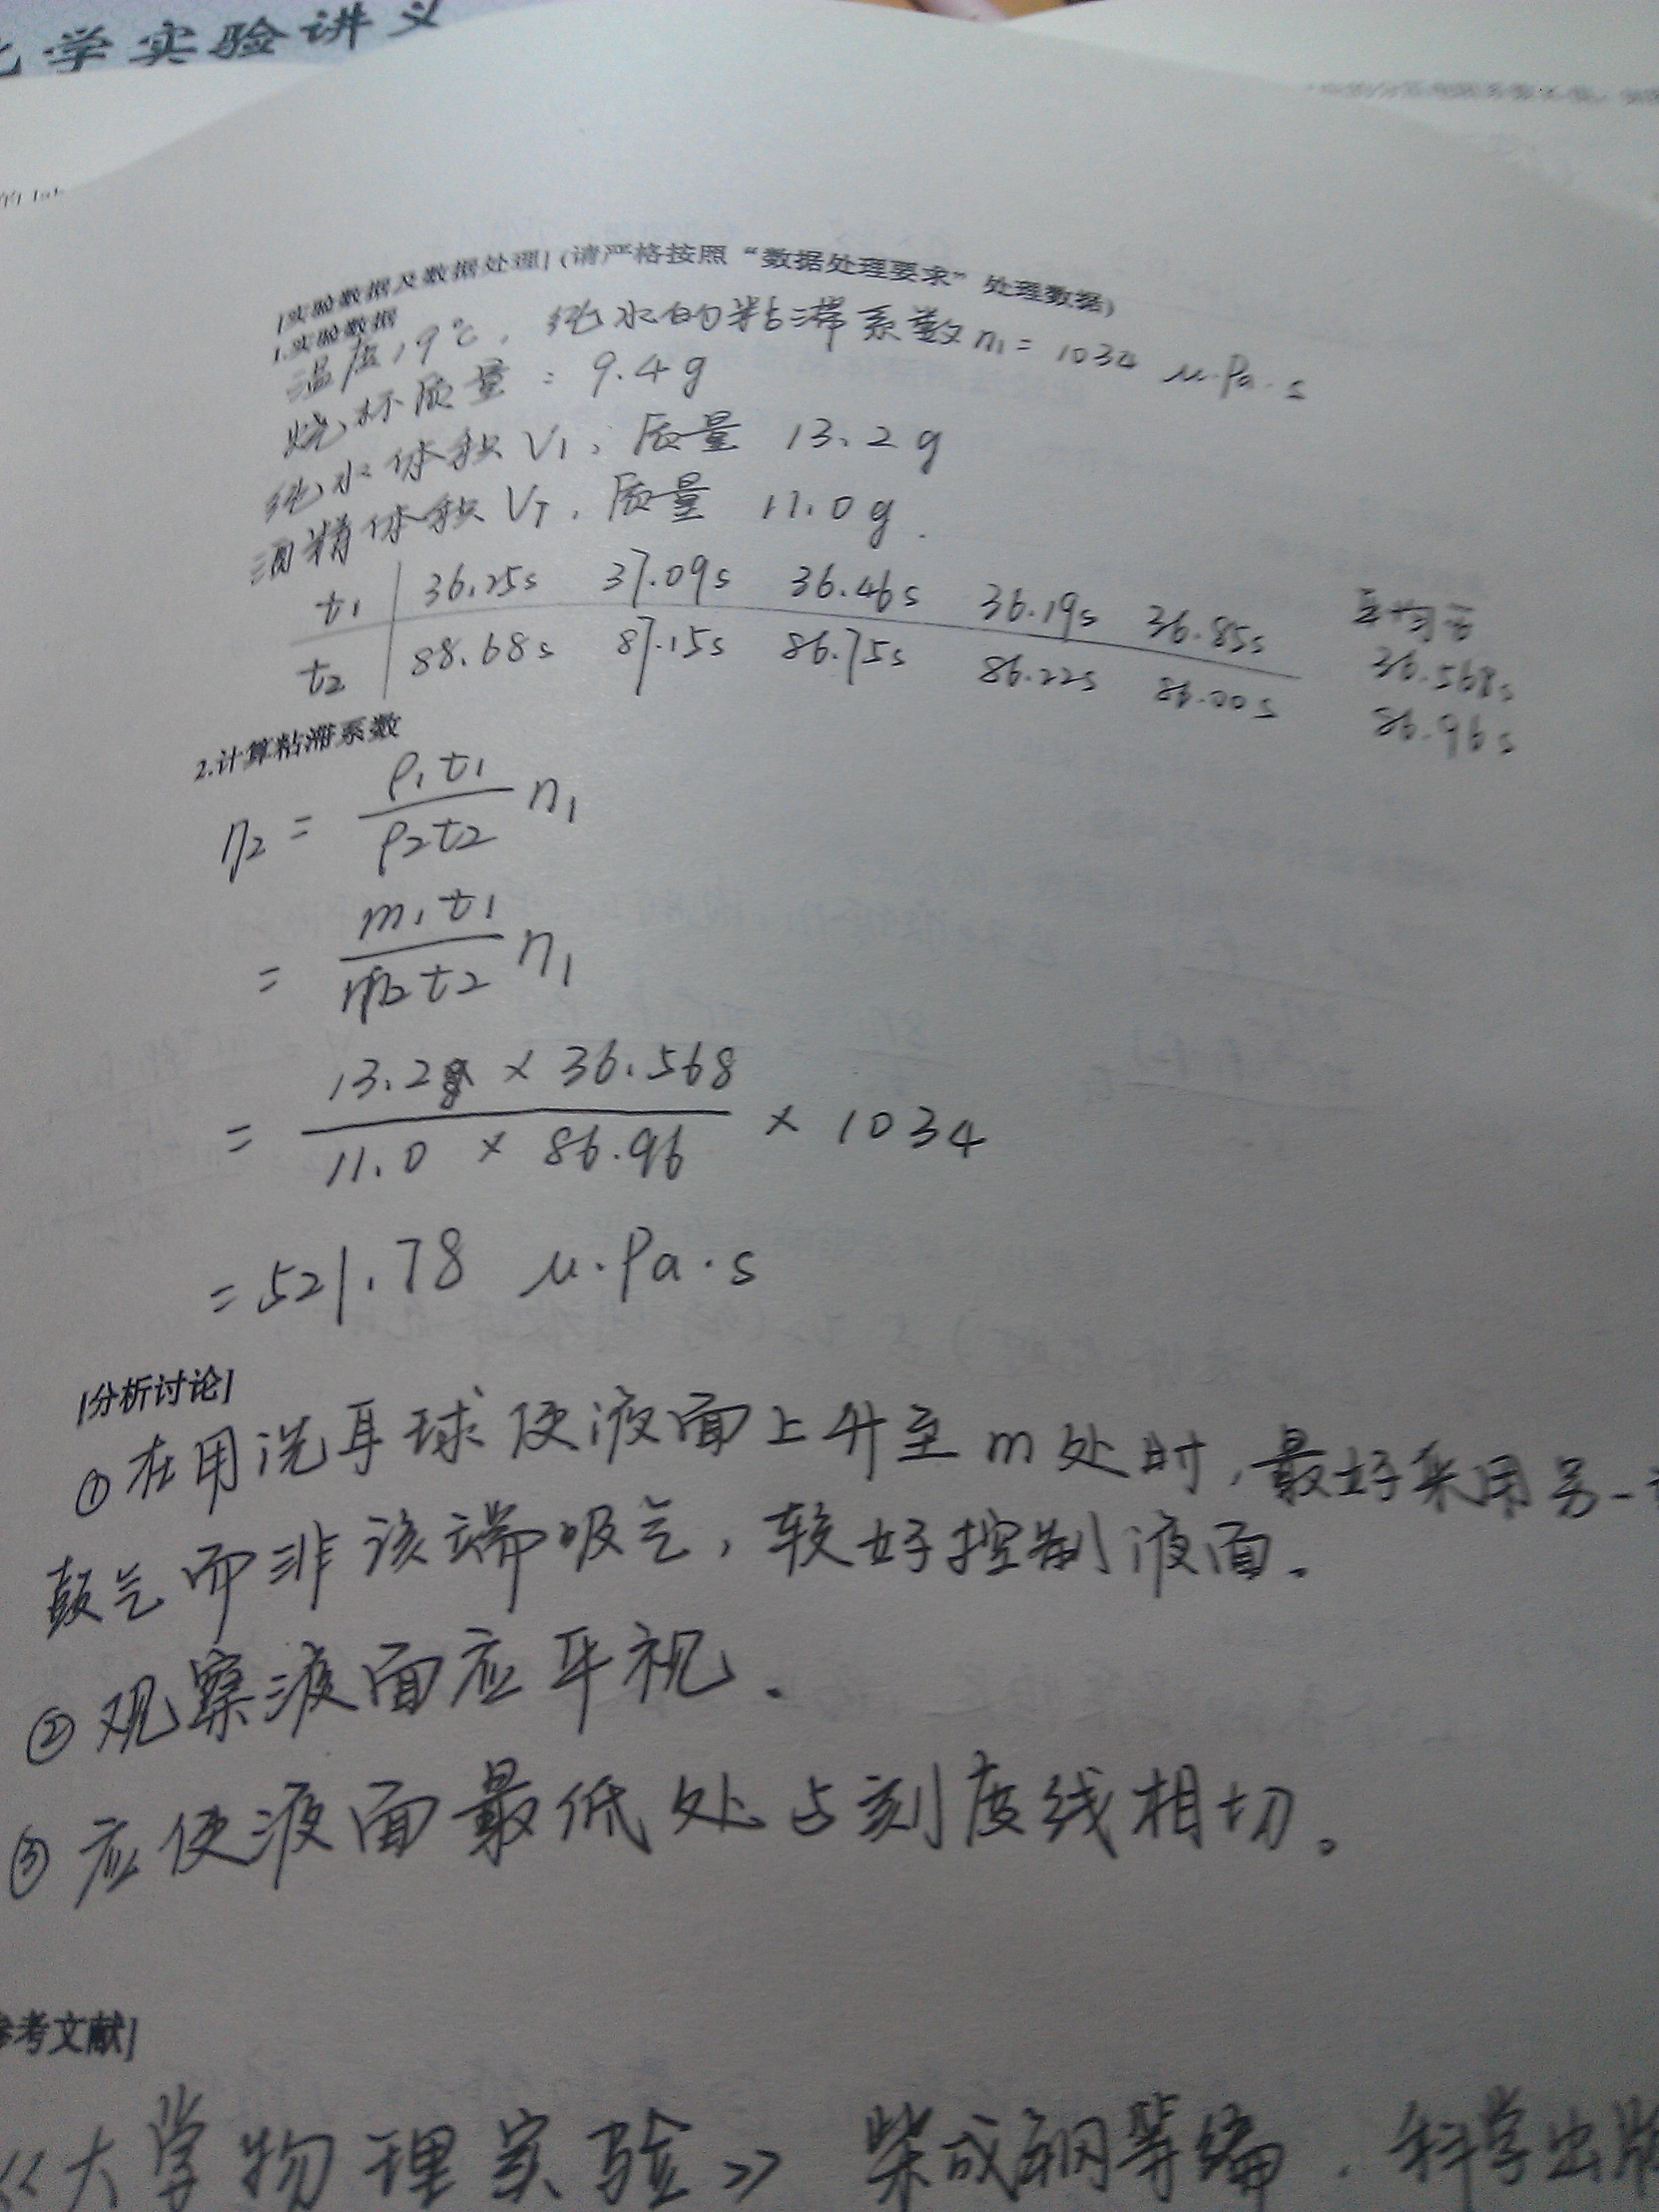 学实验讲义
[实验数据及数据处理] (请严格按照“数据处理要求”处理数据)
1.实验数据
温度19℃, 纯水的粘滞系数 η₁ = 1034 μ·Pa·s
烧杯质量: 9.4g
纯水体积 V₁, 质量 13.2g
酒精体积 V₁, 质量 11.0g.
t₁ 36.25s 37.09s 36.46s 36.19s 36.85s 平均t 36.568s
t₂ 88.68s 87.15s 86.75s 86.22s 86.00s 86.96s
2.计算粘滞系数
η₂ = ρ₁t₁ / ρ₂t₂ η₁
= m₁t₁ / m₂t₂ η₁
= 13.2 × 36.568 / 11.0 × 86.96 × 1034
= 521.78 μ·Pa·s
[分析讨论]
① 在用洗耳球使液面上升至m处时,最好采用另一
鼓气而非该端吸气,较好控制液面。
② 观察液面应平视.
③ 应使液面最低处与刻度线相切。
参考文献]
《大学物理实验》 柴成钢等编. 科学出版